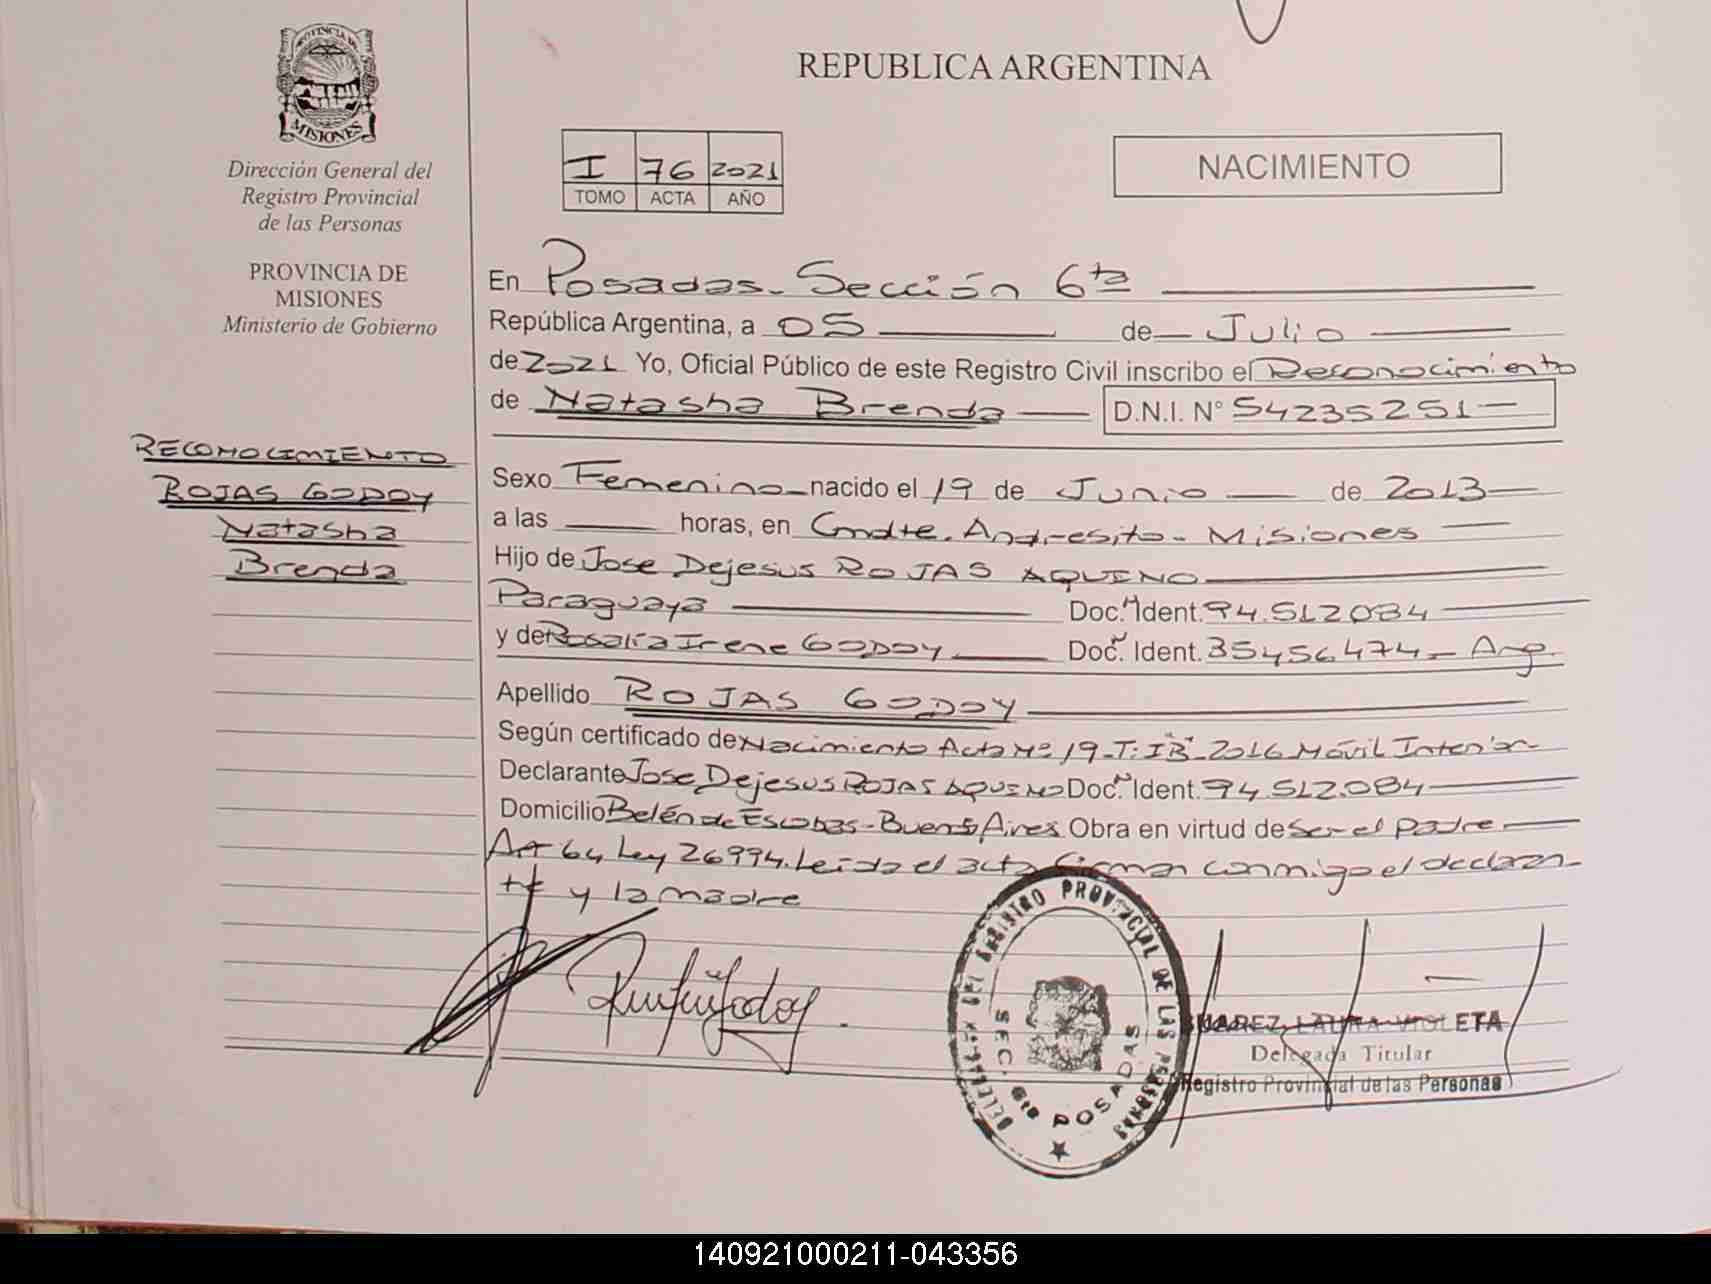 PROVINCIA DE
MISIONES
Dirección General del
Registro Provincial
de las Personas
PROVINCIA DE
MISIONES
Ministerio de Gobierno
RECONOCIMIENTO
ROJAS GODOY
Natasha
Brenda
REPUBLICA ARGENTINA
I 76 2021
TOMO ACTA AÑO
NACIMIENTO
En Posadas - Sección 6ta
República Argentina, a 05 de Julio
de 2021 Yo, Oficial Público de este Registro Civil inscribo el Reconocimiento
de Natasha Brenda D.N.I. N° 54235251
Sexo Femenino nacido el 19 de Junio de 2013
a las horas, en Cmdte. Andresito - Misiones
Hijo de Jose Dejesus ROJAS AQUINO
Paraguaya Doc. Ident. 94.512.084
y de Rosalía Irene GODOY Doc. Ident. 35456474 - Arg.
Apellido ROJAS GODOY
Según certificado de Nacimiento Acta Nº 19-T: I"B"-2016 Móvil Interior
Declarante Jose Dejesus ROJAS AQUINO Doc. Ident. 94.512.084
Domicilio Belén de Escobar - Buenos Aires Obra en virtud de ser el padre
Art 64 Ley 26994. Leída el acta firman conmigo el declaran-
te y la madre
DELEGACION DEL REGISTRO PROVINCIAL DE LAS PERSONAS
SEC. 6ta POSADAS
SUAREZ, LAURA VIOLETA
Delegada Titular
Registro Provincial de las Personas
140921000211-043356